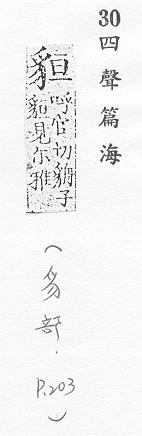 30四聲篇海
貆
呼官切貈子
貆見尒雅
(豸部.P.203)